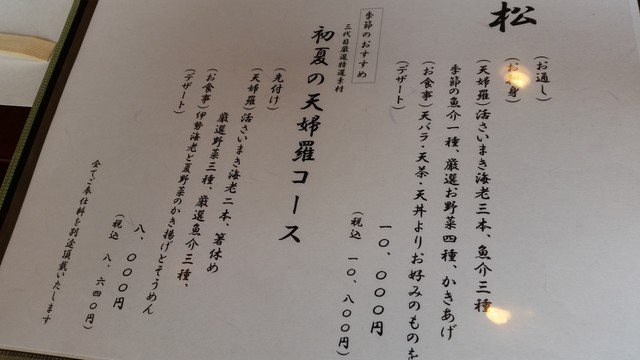 松
(お通し)
(お 身)
(天婦羅)活さいまき海老三本、魚介三種
季節の魚介一種、厳選お野菜四種、かきあげ
(お食事)天バラ・天茶・天丼よりお好みのものを
(デザート)
一〇、〇〇〇円
(税込 一〇、八〇〇円)
季節のおすすめ
三代目厳選特選素材
初夏の天婦羅コース
(先付け)
(天婦羅)活さいまき海老二本、箸休め
厳選野菜三種、厳選魚介三種、
(お食事)伊勢海老と夏野菜のかき揚げとそうめん
(デザート)
八、〇〇〇円
(税込 八、六四〇円)
全てご奉仕料を別途頂戴いたします